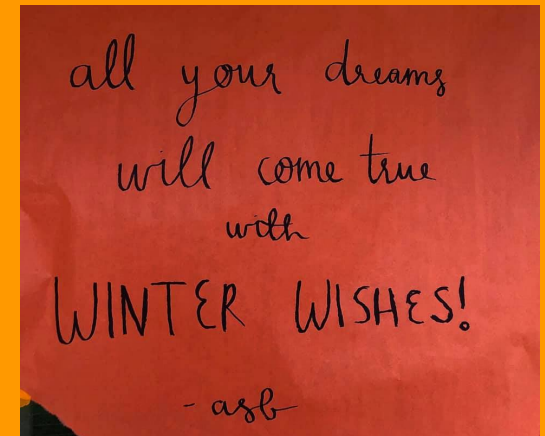 all your dreams
will come true
with
WINTER WISHES!
- asb